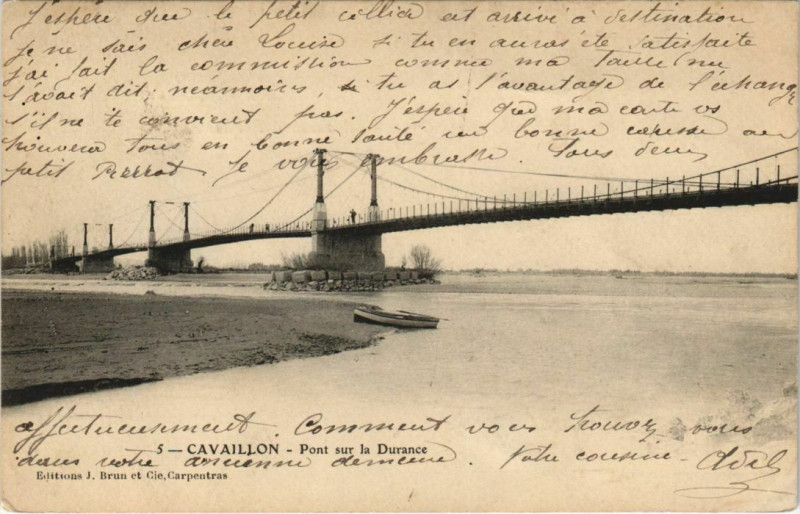 J'espère que le petit collier est arrivé à destination
je ne sais chère Louise si tu en auras été satisfaite
j'ai fait la commission comme ma Tante me
l'avait dit. néanmoins, si tu as l'avantage de l'échange
s'il ne te convient pas. J'espère que ma carte vs
trouvera tous en bonne santé une bonne caresse au
petit Pierrot je vous embrasse. Tous deux
affectueusement. Comment vous trouvez vous
dans votre ancienne demeure. Votre cousine
5 — CAVAILLON - Pont sur la Durance
Editions J. Brun et Cie, Carpentras